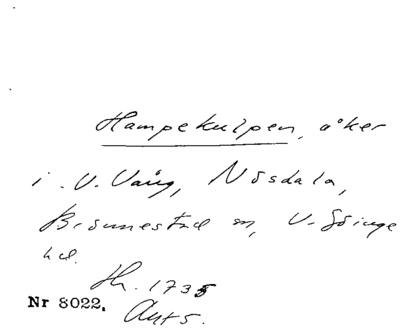 Hampekulpen, åker
i V. Vång, Nösdala,
Brönnestad sn, V. Göinge
hd.
Th. 1735
Nr 8022. Akt 5.